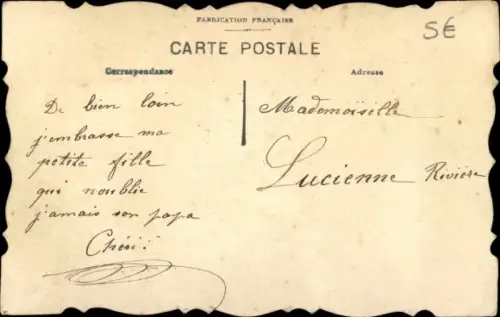 FABRICATION FRANÇAISE
5€
CARTE POSTALE
Correspondance
Adresse
De bien loin
j'embrasse ma
petite fille
qui noublie
j'amais son papa
Chéri
Mademoiselle
Lucienne Rivière